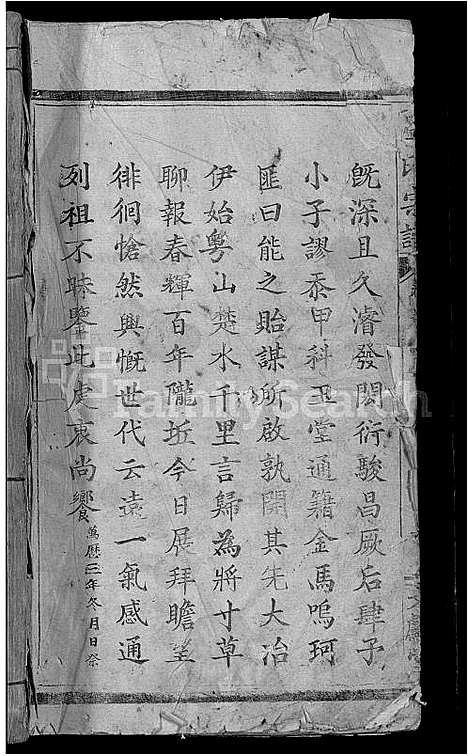 既深且久濬發閎衍駿昌厥后肆予
小子謬忝甲科玉堂通籍金馬鳴珂
匪曰能之貽謀所啟孰開其先大冶
伊始粵山楚水千里言歸為將寸草
聊報春輝百年隴坵今日展拜瞻望
徘徊愴然興慨世代云遠一氣感通
列祖不昧鑒此虔衷尚饗萬曆三年冬月日祭
氏宗譜
FamilySearch